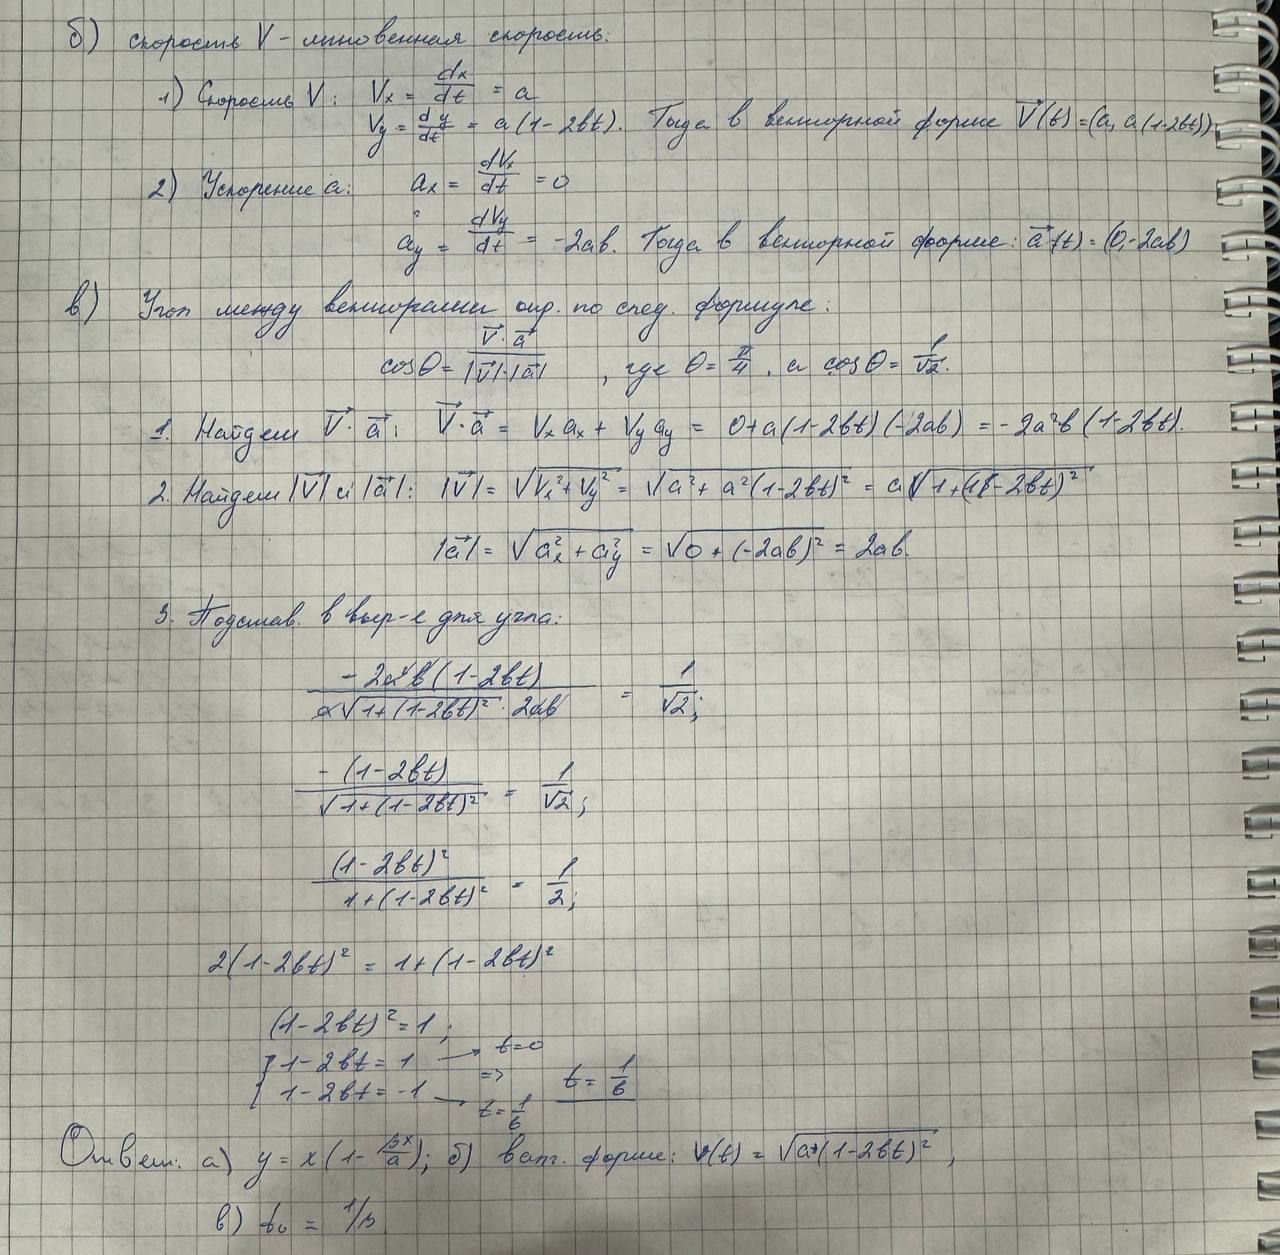 б) скорость V - мгновенная скорость:
1) Скорость V: Vx = dx/dt = a
Vy = dy/dt = a(1-2bt). Тогда в векторной форме V⃗(t)=(a, a(1-2bt))
2) Ускорение a: ax = dVx/dt = 0
ay = dVy/dt = -2ab. Тогда в векторной форме: a⃗(t) = (0,-2ab)
в) Угол между векторами опр. по след. формуле:
cosθ = V⃗·a⃗/|V⃗|·|a⃗|, где θ = π/4, а cosθ = 1/√2.
1. Найдем V⃗·a⃗: V⃗·a⃗ = Vx ax + Vy ay = 0+a(1-2bt)(-2ab) = -2a²b(1-2bt).
2. Найдем |V⃗| и |a⃗|: |V⃗| = √(Vx²+Vy²) = √(a²+a²(1-2bt)²) = a√(1+(1-2bt)²)
|a⃗| = √(ax²+ay²) = √(0+(-2ab)²) = 2ab.
3. Подстав. в выр-е для угла:
-2a²b(1-2bt)/(a√(1+(1-2bt)²)·2ab) = 1/√2;
-(1-2bt)/√(1+(1-2bt)²) = 1/√2;
(1-2bt)²/(1+(1-2bt)²) = 1/2;
2(1-2bt)² = 1+(1-2bt)²
(1-2bt)²=1;
1-2bt = 1 → t=0
1-2bt = -1 → t=1/b => t = 1/b
Ответ: а) y = x(1-βx/a); б) в ... форме: v(t) = √(a+(1-2bt)²);
в) t₀ = 1/β.